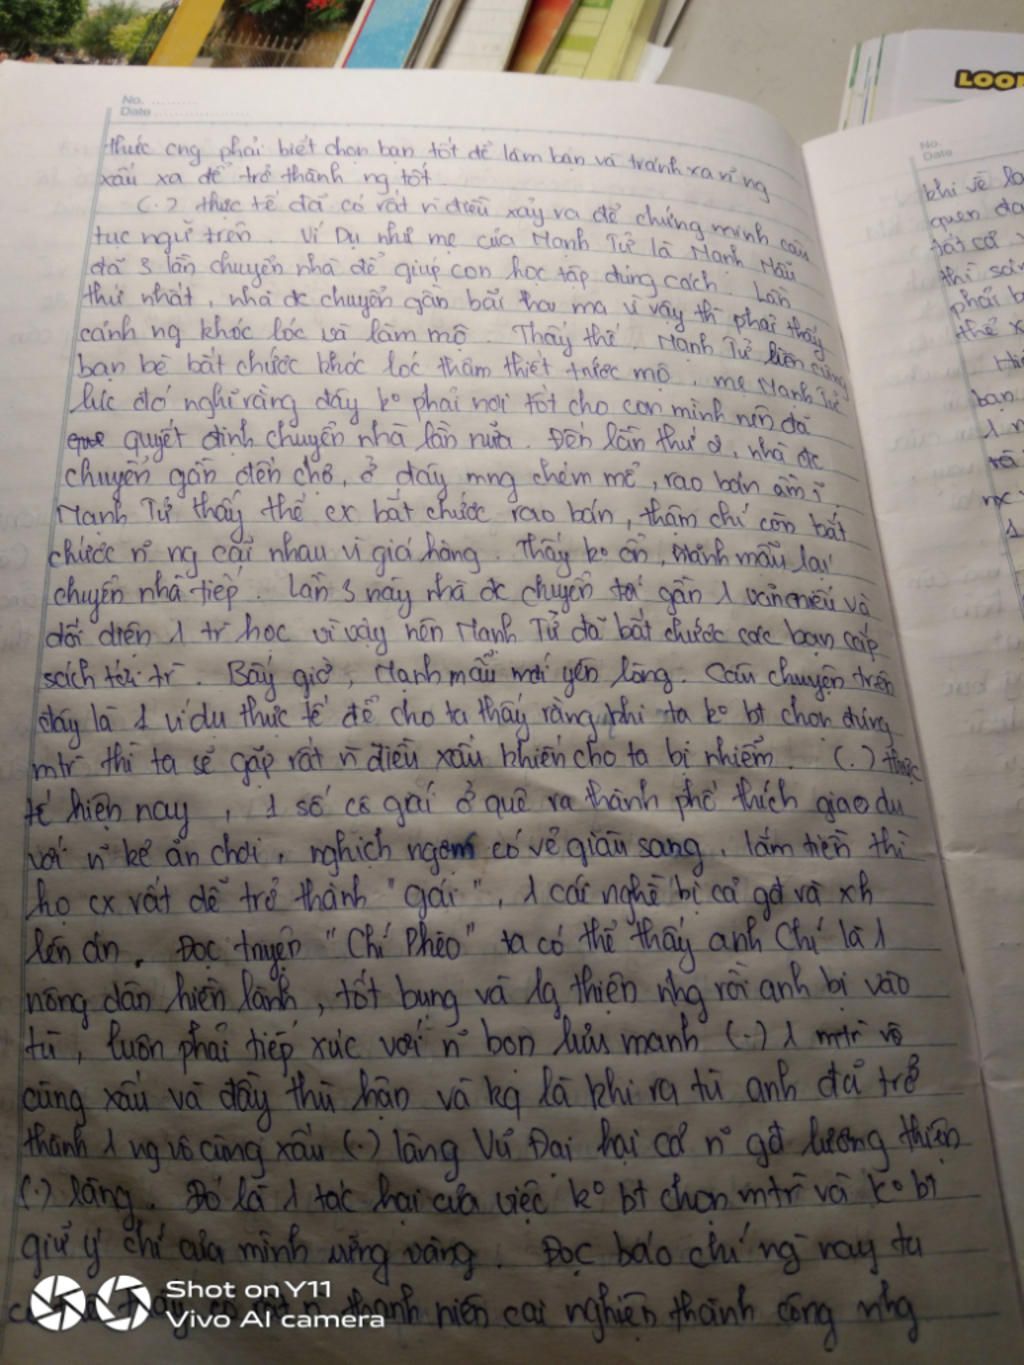 LOOK
No.
Date
thức cng phải biết chọn bạn tốt để làm bạn và tránh xa n~ ng
xấu xa để trở thành ng tốt.
(.) thực tế đã có rất n~ điều xảy ra để chứng minh câu
tục ngữ trên. Ví Dụ như mẹ của Mạnh Tử là Mạnh Mẫu
đã 3 lần chuyển nhà để giúp con học tập đúng cách. Lần
thứ nhất, nhà đc chuyển gần bãi tha ma vì vậy thì phải thấy
cảnh ng khóc lóc và làm mộ. Thấy thế, Mạnh Tử liền cùng
bạn bè bắt chước khóc lóc thảm thiết trước mộ. mẹ Mạnh Tử
lúc đó nghĩ rằng đây ko phải nơi tốt cho con mình nên đã
quyết định chuyển nhà lần nữa. Đến lần thứ 2, nhà đc
chuyển gần đến chợ, ở đấy mng chém mổ, rao bán ầm ĩ.
Mạnh Tử thấy thế cx bắt chước rao bán, thậm chí còn bắt
chước n~ ng cãi nhau vì giá hàng. Thấy ko ổn, Mạnh mẫu lại
chuyển nhà tiếp. Lần 3 này nhà đc chuyển tới gần 1 văn miếu và
đối diện 1 tr học vì vậy nên Mạnh Tử đã bắt chước các bạn cắp
sách tới tr. Bấy giờ, Mạnh mẫu mới yên lòng. Câu chuyện trên
đây là 1 ví dụ thực tế để cho ta thấy rằng khi ta ko bt chọn đúng
mtr thì ta sẽ gặp rất n~ điều xấu khiến cho ta bị nhiễm. (.) thực
tế hiện nay, 1 số cô gái ở quê ra thành phố thích giao du
với n~ kẻ ăn chơi, nghịch ngợm có vẻ giàu sang, lắm tiền thì
họ cx rất dễ trở thành "gái", 1 cái nghề bị cả gđ và xh
lên án. Đọc truyện "Chí Phèo" ta có thể thấy anh Chí là 1
nông dân hiền lành, tốt bụng và lg thiện nhg rồi anh bị vào
tù, luôn phải tiếp xúc với n~ bọn lưu manh (.) 1 mtr vô
cùng xấu và đầy thù hận và kq là khi ra tù anh đã trở
thành 1 ng vô cùng xấu (.) làng Vũ Đại hại cả n~ gđ lương thiện
(.) làng. Đó là 1 tác hại của việc ko bt chọn mtr và ko bt
giữ ý chí của mình vững vàng. Đọc báo chí ng nay ta
thanh niên cai nghiện thành công nhg
Shot on Y11
Vivo AI camera
No.
Date
khi về
quen
tất cả
phải
thế
bạn
1